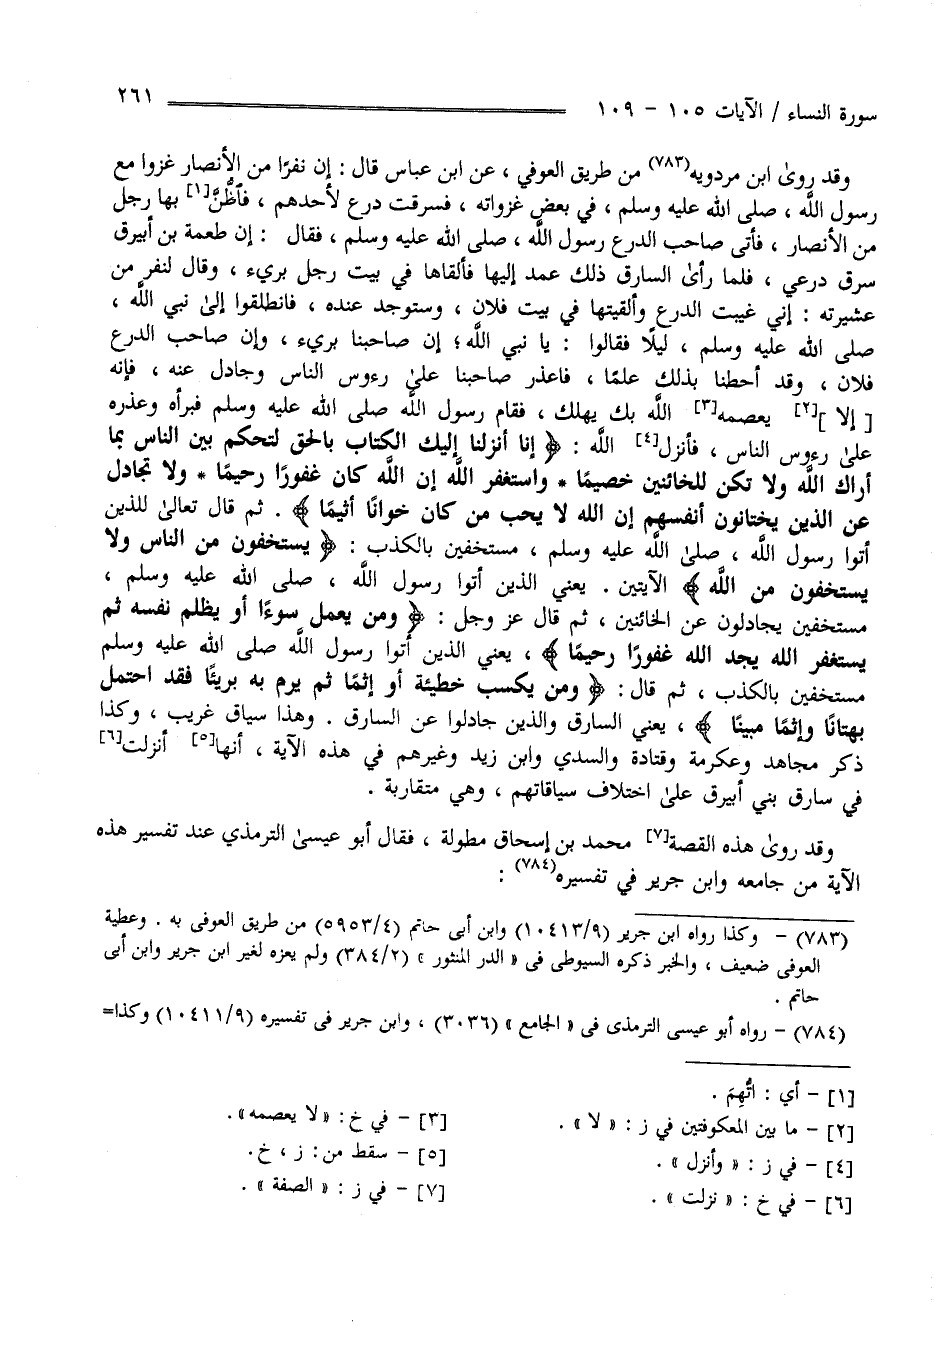 سورة النساء / الآيات ١٠٥ - ١٠٩ ٢٦١
وقد روىٰ ابن مردويه(٧٨٣) من طريق العوفي ، عن ابن عباس قال : إن نفرًا من الأنصار غزوا مع
رسول اللَّه ، صلى الله عليه وسلم ، في بعض غزواته ، فسرقت درع لأحدهم ، فَأظُنَّ[١] بها رجل
من الأنصار ، فأتى صاحب الدرع رسول اللَّه ، صلى الله عليه وسلم ، فقال : إن طعمة بن أبيرق
سرق درعي ، فلما رأىٰ السارق ذلك عمد إليها فألقاها في بيت رجل بريء ، وقال لنفر من
عشيرته : إني غيبت الدرع وألقيتها في بيت فلان ، وستوجد عنده ، فانطلقوا إلىٰ نبي اللَّه ،
صلى الله عليه وسلم ، ليلًا فقالوا : يا نبي اللَّه؛ إن صاحبنا بريء ، وإن صاحب الدرع
فلان ، وقد أحطنا بذلك علمًا ، فاعذر صاحبنا علىٰ رءوس الناس وجادل عنه ، فإنه
[ إلا ][٢] يعصمه[٣] اللَّه بك يهلك ، فقام رسول اللَّه صلى الله عليه وسلم فبرأه وعذره
علىٰ رءوس الناس ، فأنزل[٤] اللَّه : ﴿ إنا أنزلنا إليك الكتاب بالحق لتحكم بين الناس بما
أراك اللَّه ولا تكن للخائنين خصيمًا * واستغفر اللَّه إن اللَّه كان غفورًا رحيمًا * ولا تجادل
عن الذين يختانون أنفسهم إن الله لا يحب من كان خوانًا أثيمًا ﴾ . ثم قال تعالىٰ للذين
أتوا رسول اللَّه ، صلىٰ اللَّه عليه وسلم ، مستخفين بالكذب : ﴿ يستخفون من الناس ولا
يستخفون من اللَّه ﴾ الآيتين . يعني الذين أتوا رسول اللَّه ، صلى الله عليه وسلم ،
مستخفين يجادلون عن الخائنين ، ثم قال عز وجل : ﴿ ومن يعمل سوءًا أو يظلم نفسه ثم
يستغفر الله يجد الله غفورًا رحيمًا ﴾ ، يعني الذين أتوا رسول اللَّه صلى الله عليه وسلم
مستخفين بالكذب ، ثم قال : ﴿ ومن يكسب خطيئة أو إثمًا ثم يرم به بريئًا فقد احتمل
بهتانًا وإثمًا مبينًا ﴾ ، يعني السارق والذين جادلوا عن السارق . وهذا سياق غريب ، وكذا
ذكر مجاهد وعكرمة وقتادة والسدي وابن زيد وغيرهم في هذه الآية ، أنها[٥] أنزلت[٦]
في سارق بني أبيرق علىٰ اختلاف سياقاتهم ، وهي متقاربة .
وقد روىٰ هذه القصة[٧] محمد بن إسحاق مطولة ، فقال أبو عيسىٰ الترمذي عند تفسير هذه
الآية من جامعه وابن جرير في تفسيره(٧٨٤) :
(٧٨٣) - وكذا رواه ابن جرير (١٠٤١٣/٩) وابن أبى حاتم (٥٩٥٣/٤) من طريق العوفى به . وعطية
العوفى ضعيف ، والخبر ذكره السيوطى فى « الدر المنثور » (٣٨٤/٢) ولم يعزه لغير ابن جرير وابن أبى
حاتم .
(٧٨٤) - رواه أبو عيسى الترمذى فى « الجامع » (٣٠٣٦) ، وابن جرير فى تفسيره (١٠٤١١/٩) وكذا=
[١] - أي : اتُّهِمَ .
[٢] - ما بين المعكوفتين في ز : « لا » . [٣] - في خ : « لا يعصمه » .
[٤] - في ز : « وأنزل » . [٥] - سقط من : ز ، خ .
[٦] - في خ : « نزلت » . [٧] - في ز : « الصفة » .